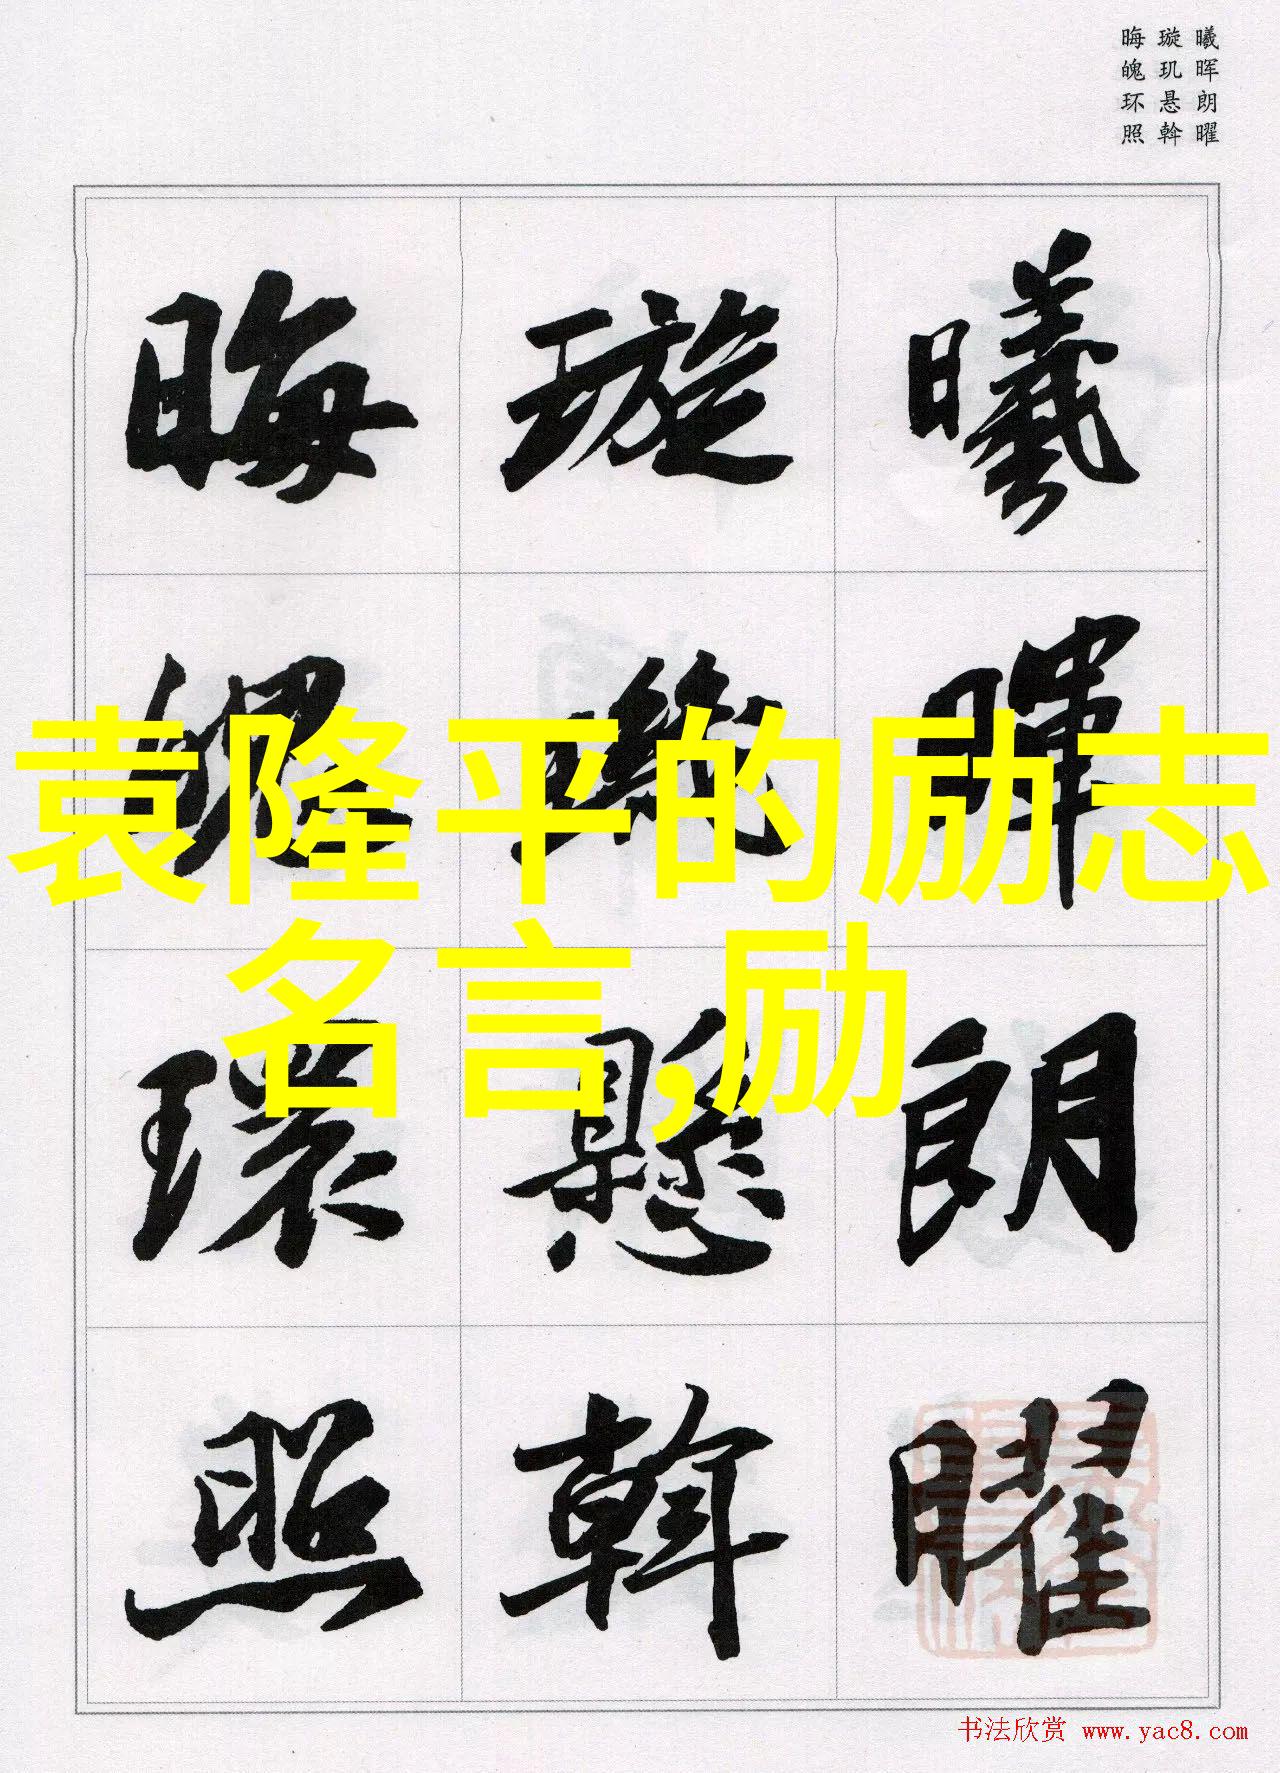 曦晖朗曜
璇玑悬斡
晦魄环照
曦暉朗曜
璇璣懸斡
晦魄環照
袁隆平的励志
名言,励
书法欣赏 www.yac8.com